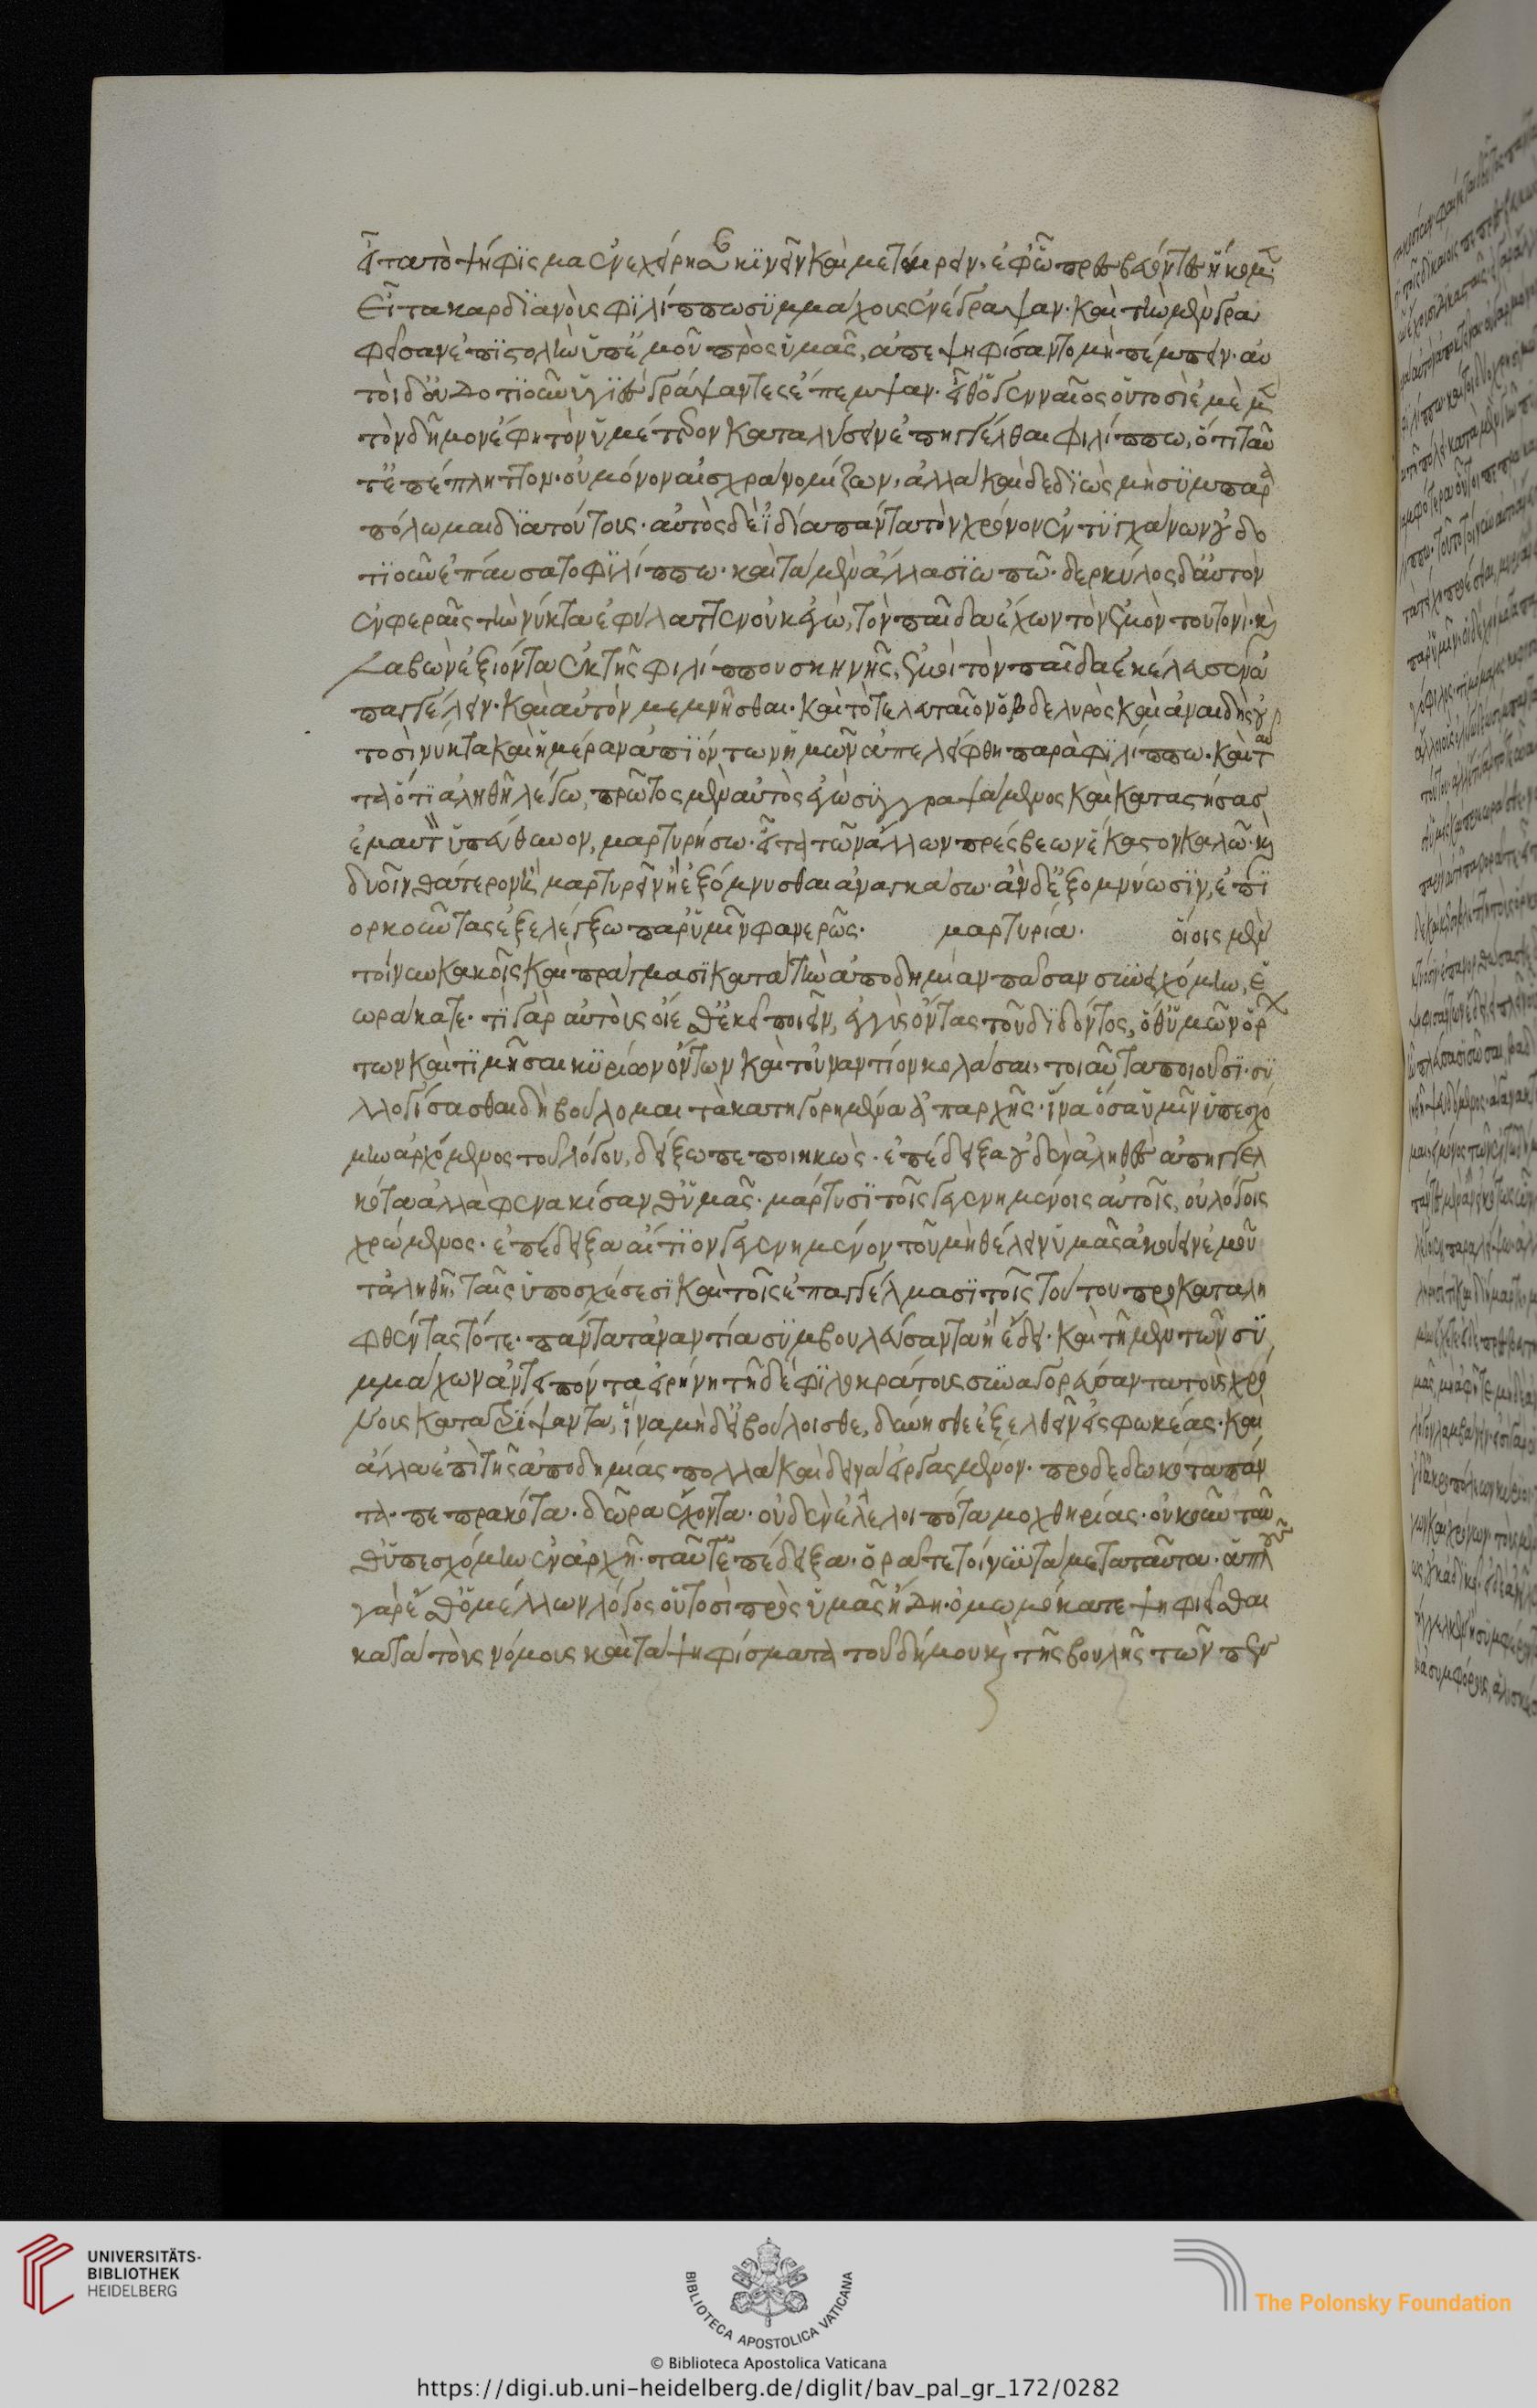 εἶτα τὸ ψήφισμα ἐνεχείρησαν κινεῖν καὶ μεταίρειν, ἐφ' ᾧ πρεσβεύοντες ἥκομεν·
Εἶτα καρδιανοὺς φιλίππω συμμάχους ἐνέγραψαν· καὶ τὴν μὲν γρα
φεῖσαν ἐπιστολὴν ὑπ' ἐμοῦ πρὸς ὑμᾶς, ἀπεψηφίσαντο μὴ πέμπειν· αὐ
τοὶ δ' οὐδοτιοῦν ὑγιὲς γράψαντες ἔπεμψαν· εἶθ' ὁ γενναῖος οὑτοσὶ ἐμὲ μὲν
τὸν δῆμον ἔφη τὸν ὑμέτερον καταλύσειν ἐπηγγέλθαι φιλίππω, ὅτι ταῦ
τ' ἐπέπληττον· οὐ μόνον αἰσχρὰ νομίζων, ἀλλὰ καὶ δεδιὼς μὴ συμπαρ
πόλωμαι διὰ τούτους· αὐτὸς δὲ ἰδία πάντα τὸν χρόνον ἐντυγχάνων οὐδο
τιοῦν ἐπαύσατο φιλίππω· καὶ τὰ μὲν ἄλλα σιωπῶ· δερκύλος δ' αὐτὸν
ἐν φεραῖς τὴν νύκτα ἐφύλαττεν οὐκ ἐγὼ, τὸν παῖδα ἔχων τὸν ἐμὸν τουτονί· καὶ
λαβὼν ἐξιόντα ἐκ τῆς φιλίππου σκηνῆς, ἐμοὶ τὸν παῖδα ἐκέλευσεν ἀ
παγγέλειν· καὶ αὐτὸν μεμνῆσθαι· καὶ τὸ τελευταῖον ὁ βδελυρὸς καὶ ἀναιδὴς οὑ
τοσὶ νύκτα καὶ ἡμέραν ἀπιόντων ἡμῶν ἀπελείφθη παρὰ φιλίππω· καὶ ταῦ
τα ὅτι ἀληθῆ λέγω, πρῶτος μὲν αὐτὸς ἐγὼ συγγραψάμενος καὶ καταστήσας
ἐμαυτὸν ὑπεύθυνον, μαρτυρήσω· εἶτα τῶν ἄλλων πρέσβεων ἕκαστον καλῶ· καὶ
δυοῖν θάτερον ἢ μαρτυρεῖν ἢ ἐξόμνυσθαι ἀναγκάσω· ἂν δ' ἐξομνύωσιν, ἐπι
ορκοῦντας ἐξελέγξω παρ' ὑμῖν φανερῶς· μαρτυρία· οἵοις μὲν
τοίνυν κακοῖς καὶ πράγμασι κατὰ τὴν ἀποδημίαν πᾶσαν συνειχόμην, ἑ
ωράκατε· τί γὰρ αὐτοὺς οἴεσθ' ἐκεῖ ποιεῖν, ἐγγὺς ὄντας τοῦ διδόντος, ὅθ' ὑμῶν ὁρ
των καὶ τιμῆσαι κυρίων ὄντων καὶ τοὐναντίον κολάσαι, τοιαῦτα ποιοῦσι· συ
λλογίσασθαι δὴ βούλομαι τὰ κατηγορημένα ἀπ' ἀρχῆς· ἵνα ὅσα ὑμῖν ὑπεσχό
μην ἀρχόμενος τοῦ λόγου, δείξω πεποιηκὼς· ἐπέδειξα οὐδὲν ἀληθὲς ἀπηγγελ
κότα ἀλλὰ φενακίσανθ' ὑμᾶς· μάρτυσι τοῖς γεγενημένοις αὐτοῖς, οὐ λόγοις
χρώμενος· ἐπέδειξα αἴτιον γεγενημένον τοῦ μὴ θέλειν ὑμᾶς ἀκούειν ἐμοῦ
τἀληθῆ, ταῖς ὑποσχέσεσι καὶ τοῖς ἐπαγγέλμασι τοῖς τούτου προκαταλη
φθέντας τότε· πάντα τἀναντία συμβουλεύσαντα ἢ ἔδει· καὶ τῆ μὲν τῶν συ
μμάχων ἀντειπόντα εἰρήνη τῆ δὲ φιλοκράτους συναγορεύσαντα τοὺς χρό
νους κατατρίψαντα, ἵνα μὴ δ' εἰ βούλοισθε, δύνησθε ἐξελθεῖν εἰς φωκέας· καὶ
ἄλλα ἐπὶ τῆς ἀποδημίας πολλὰ καὶ δεινὰ εἰργασμένον· προδεδωκότα πάν
τα· πεπρακότα· δῶρα ἔχοντα· οὐδὲν ἐλλελοιπότα μοχθηρίας· οὐκοῦν ταῦ
θ' ὑπεσχόμην ἐν ἀρχῆ· ταῦτ' ἐπέδειξα· ὁρᾶτε τοίνυν τὰ μετὰ ταῦτα· ἁπλοῦς
γὰρ ἔσθ' ὁ μέλλων λόγος οὑτοσὶ πρὸς ὑμᾶς ἤδη· ὀμωμόκατε ψηφιεῖσθαι
κατὰ τοὺς νόμους καὶ τὰ ψηφίσματα τοῦ δήμου καὶ τῆς βουλῆς τῶν πεν
UNIVERSITÄTS-
BIBLIOTHEK
HEIDELBERG
BIBLIOTECA APOSTOLICA VATICANA
The Polonsky Foundation
© Biblioteca Apostolica Vaticana
https://digi.ub.uni-heidelberg.de/diglit/bav_pal_gr_172/0282